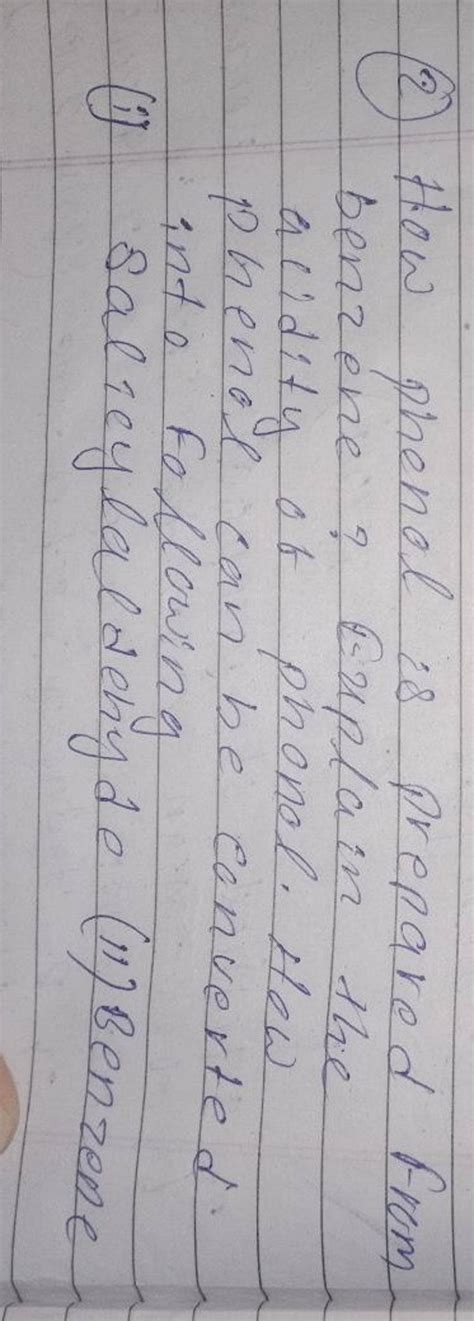 (2) How phenol is prepared from
benzene? Explain the
acidity of phenol. How
phenol can be converted
into following
(i) Salicylaldehyde (ii) Benzene